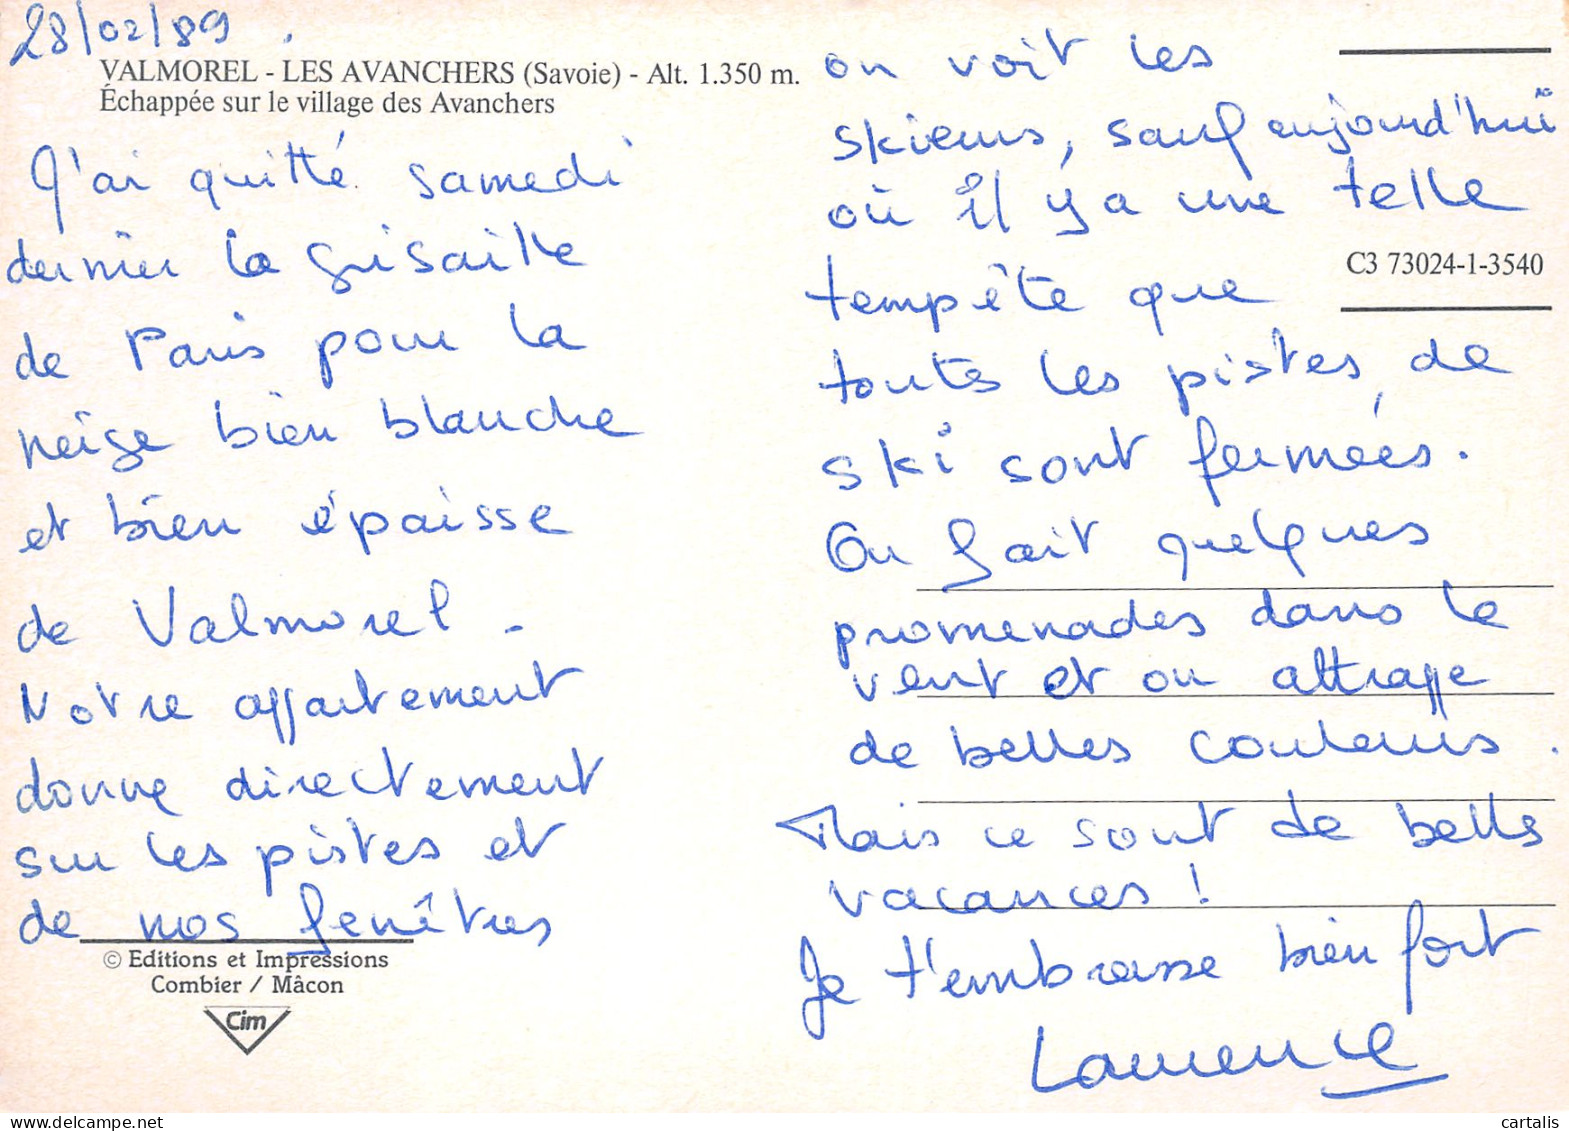 28/02/89
VALMOREL - LES AVANCHERS (Savoie) - Alt. 1.350 m.
Échappée sur le village des Avanchers
J'ai quitté samedi
dernier la grisaille
de Paris pour la
neige bien blanche
et bien épaisse
de Valmorel -
Notre appartement
donne directement
sur les pistes et
de nos fenêtres
© Editions et Impressions
Combier / Mâcon
Cim
on voit les
skieurs, sauf aujourd'hui
où il y a une telle
C3 73024-1-3540
tempête que
toutes les pistes de
ski sont fermées.
On fait quelques
promenades dans le
vent et on attrappe
de belles couleurs.
Mais ce sont de belles
vacances !
Je t'embrasse bien fort
Laurence
cartalis